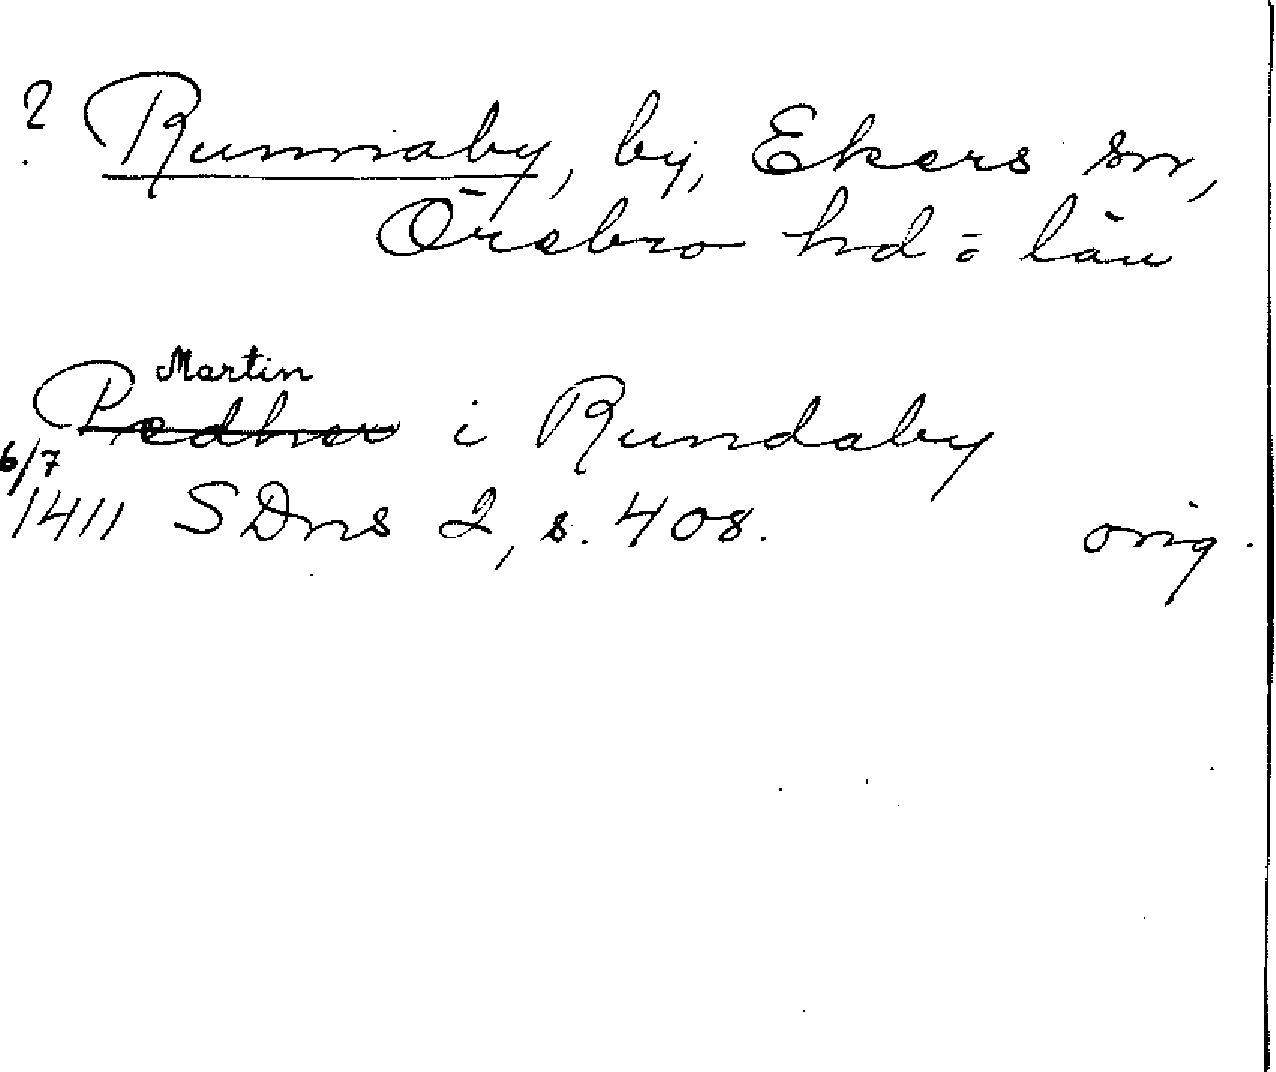 ? Runnaby, by, Ekers sn,
Örebro hd o län
Martin
Pedher i Rundaby
6/7
1411 SDns 2, s. 408. orig.